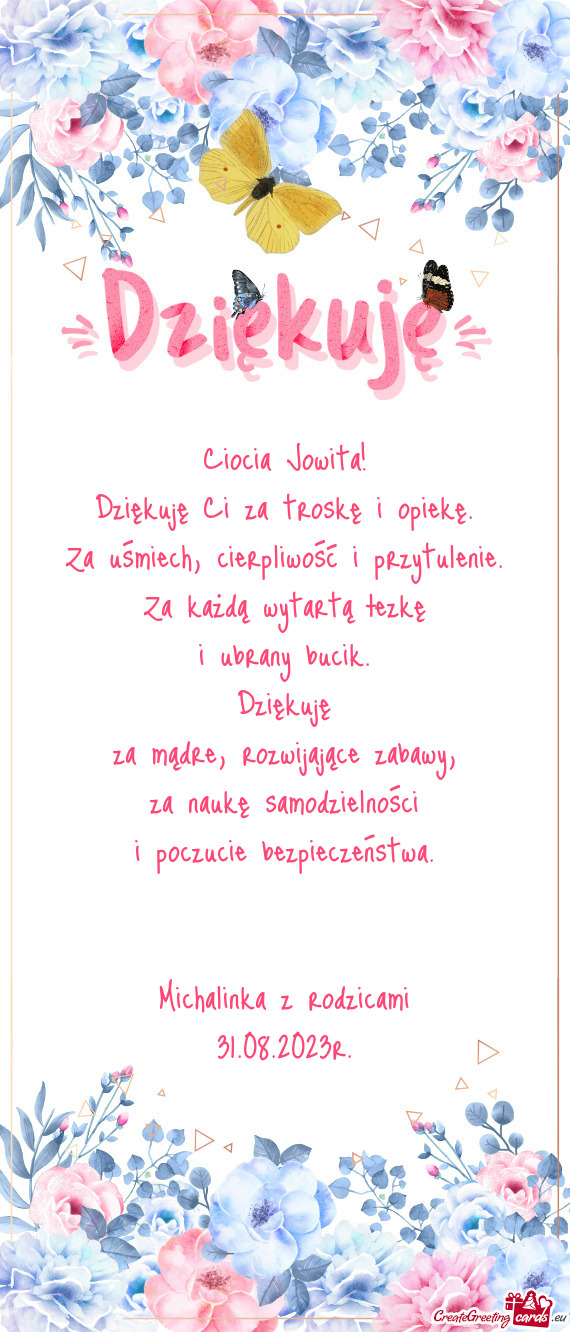 Dziękuję
Ciocia Jowita!
Dziękuję Ci za troskę i opiekę.
Za uśmiech, cierpliwość i przytulenie.
Za każdą wytartą łezkę
i ubrany bucik.
Dziękuję
za mądre, rozwijające zabawy,
za naukę samodzielności
i poczucie bezpieczeństwa.
Michalinka z rodzicami
31.08.2023r.
CreateGreeting cards .eu